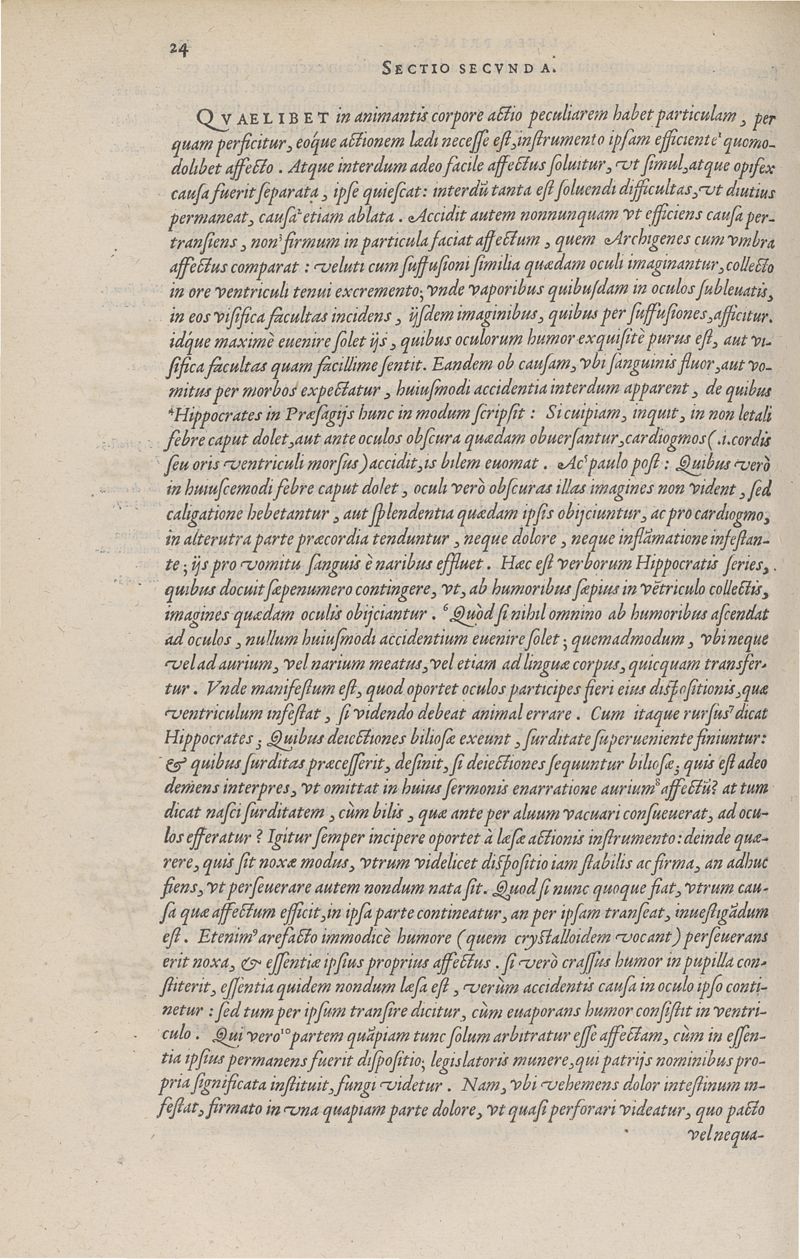 24
SECTIO SECVNDA.
QVAELIBET in animantis corpore actio peculiarem habet particulam, per
quam perficitur, eoq́ue actionem lædi necesse est, instrumento ipsam efficiente¹ quomo-
dolibet affecto. Atque interdum adeo facile affectus soluitur, vt simul, atque opifex
causa fuerit separata, ipse quiescat: interdũ tanta est soluendi difficultas, vt diutius
permaneat, causa² etiam ablata. Accidit autem nonnunquam vt efficiens causa per-
transiens, non³ firmum in particula faciat affectum, quem Archigenes cum vmbra
affectus comparat: veluti cum suffusioni similia quædam oculi imaginantur, collecto
in ore ventriculi tenui excremento; vnde vaporibus quibusdam in oculos subleuatis,
in eos visifica facultas incidens, ijsdem imaginibus, quibus per suffusiones, afficitur.
idq́ue maximè euenire solet ijs, quibus oculorum humor exquisitè purus est, aut vi-
sifica facultas quam facillime sentit. Eandem ob causam, vbi sanguinis fluor, aut vo-
mitus per morbos expectatur, huiusmodi accidentia interdum apparent, de quibus
⁴Hippocrates in Præsagijs hunc in modum scripsit: Si cuipiam, inquit, in non letali
febre caput dolet, aut ante oculos obscura quædam obuersantur, cardiogmos (.i. cordis
seu oris ventriculi morsus) accidit, is bilem euomat. Ac⁵ paulo post: Quibus verò
in huiuscemodi febre caput dolet, oculi verò obscuras illas imagines non vident, sed
caligatione hebetantur, aut splendentia quædam ipsis obijciuntur, ac pro cardiogmo,
in alterutra parte præcordia tenduntur, neque dolore, neque inflãmatione infestan-
te; ijs pro vomitu sanguis è naribus effluet. Hæc est verborum Hippocratis series,
quibus docuit sæpenumero contingere, vt, ab humoribus sæpius in vẽtriculo collectis,
imagines quædam oculis obijciantur. ⁶Quòd si nihil omnino ab humoribus ascendat
ad oculos, nullum huiusmodi accidentium euenire solet; quemadmodum, vbi neque
vel ad aurium, vel narium meatus, vel etiam ad linguæ corpus, quicquam transfer-
tur. Vnde manifestum est, quod oportet oculos participes fieri eius dispositionis, quæ
ventriculum infestat, si videndo debeat animal errare. Cum itaque rursus⁷ dicat
Hippocrates; Quibus deiectiones biliosæ exeunt, surditate superueniente finiuntur:
& quibus surditas præcesserit, desinit, si deiectiones sequuntur biliosæ; quis est adeo
demens interpres, vt omittat in huius sermonis enarratione aurium⁸ affectũ? at tum
dicat nasci surditatem, cùm bilis, quæ ante per aluum vacuari consueuerat, ad ocu-
los efferatur? Igitur semper incipere oportet à læsæ actionis instrumento: deinde quæ-
rere, quis sit noxæ modus, vtrum videlicet dispositio iam stabilis ac firma, an adhuc
fiens, vt perseuerare autem nondum nata sit. Quod si nunc quoque fiat, vtrum cau-
sa quæ affectum efficit, in ipsa parte contineatur, an per ipsam transeat, inuestigãdum
est. Etenim⁹ arefacto immodicè humore (quem crystalloidem vocant) perseuerans
erit noxa, & essentiæ ipsius proprius affectus. si verò crassus humor in pupilla con-
stiterit, essentia quidem nondum læsa est, verùm accidentis causa in oculo ipso conti-
netur: sed tum per ipsum transire dicitur, cùm euaporans humor consistit in ventri-
culo. Qui vero¹⁰ partem quãpiam tunc solum arbitratur esse affectam, cùm in essen-
tia ipsius permanens fuerit dispositio; legislatoris munere, qui patrijs nominibus pro-
pria significata instituit, fungi videtur. Nam, vbi vehemens dolor intestinum in-
festat, firmato in vna quapiam parte dolore, vt quasi perforari videatur, quo pacto
vel nequa-